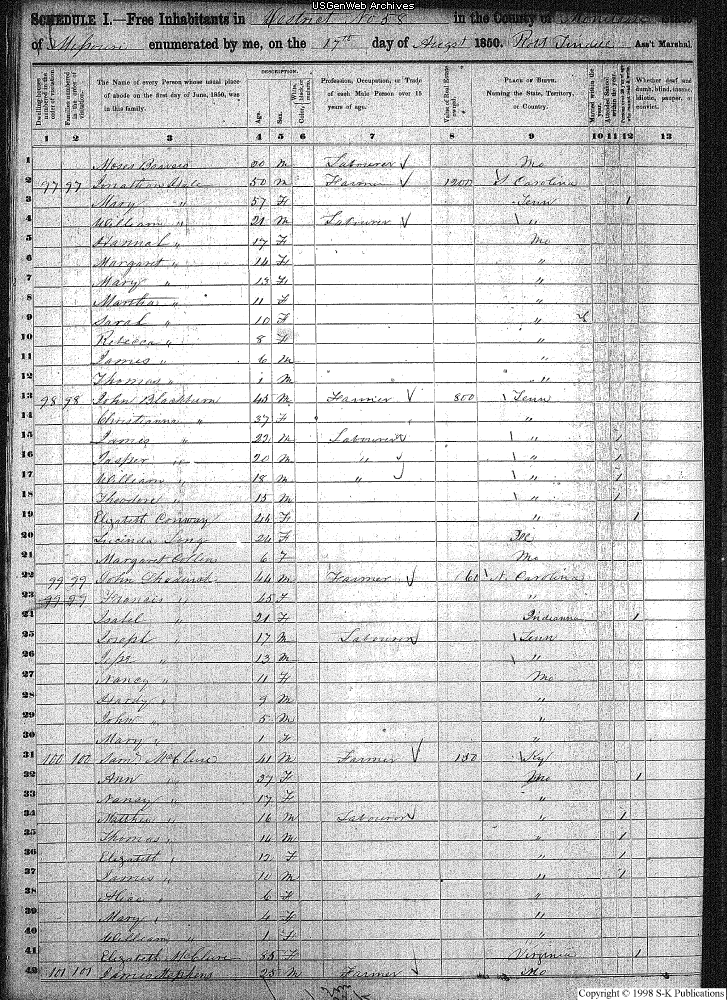 USGenWeb Archives
SCHEDULE I.—Free Inhabitants in District No 58 in the County of State
of Missouri enumerated by me, on the 17th day of August 1850. Ass't Marshal
Dwelling-houses numbered in the order of visitation.
Families numbered in the order of visitation.
The Name of every Person whose usual place of abode on the first day of June, 1850, was in this family.
DESCRIPTION.
Age.
Sex.
White, black, or mulatto.
Color
Profession, Occupation, or Trade of each Male Person over 15 years of age.
Value of Real Estate owned.
PLACE OF BIRTH.
Naming the State, Territory, or Country.
Married within the year.
Whether deaf and dumb, blind, insane, idiotic, pauper, or convict.
1 2 3 4 5 6 7 8 9 10 11 12 13
1 Moses 20 M Labourer Mo
2 97 97 Jonathan 50 M Farmer 1200 S Carolina
3 Mary " 57 F Tenn 1
4 William " 21 M Labourer "
5 Hannah " 17 F Mo
6 Margaret " 14 F "
7 Mary " 13 F "
8 Martha " 11 F "
9 Sarah " 10 F "
10 Rebecca " 8 F "
11 James " 6 M "
12 Thomas " 1 M "
13 98 98 John Blackburn 45 M Farmer 800 Tenn
14 Christianna " 37 F "
15 James " 22 M Labourer " 1
16 Jasper " 20 M " " 1
17 William " 18 M " " 1
18 Theodore " 15 M " 1
19 Elizabeth Conway 46 F " 1
20 Lucinda Long 24 F
21 Margaret 6 F Mo
22 99 99 John 44 M Farmer N. Carolina
23 99 99 Francis " 45 F "
24 Isabel " 21 F Indianna 1
25 Joseph " 17 M Labourer Tenn
26 Jesse " 13 M "
27 Nancy " 11 F Mo
28 Hardy " 9 M "
29 John " 5 M "
30 Mary " 1 F "
31 100 100 Sam McClure 41 M Farmer 150 Ky
32 Ann " 37 F Mo 1
33 Nancy " 17 F "
34 Matthew " 16 M Labourer " 1
35 Thomas " 14 M " 1
36 Elizabeth " 12 F " 1
37 James " 10 M " 1
38 " 6 F "
39 Mary " 4 F "
40 William " 1 "
41 Elizabeth McClure F Virginia 1
42 101 101 James Stephens 25 M Farmer Mo
Copyright © 1998 S-K Publications